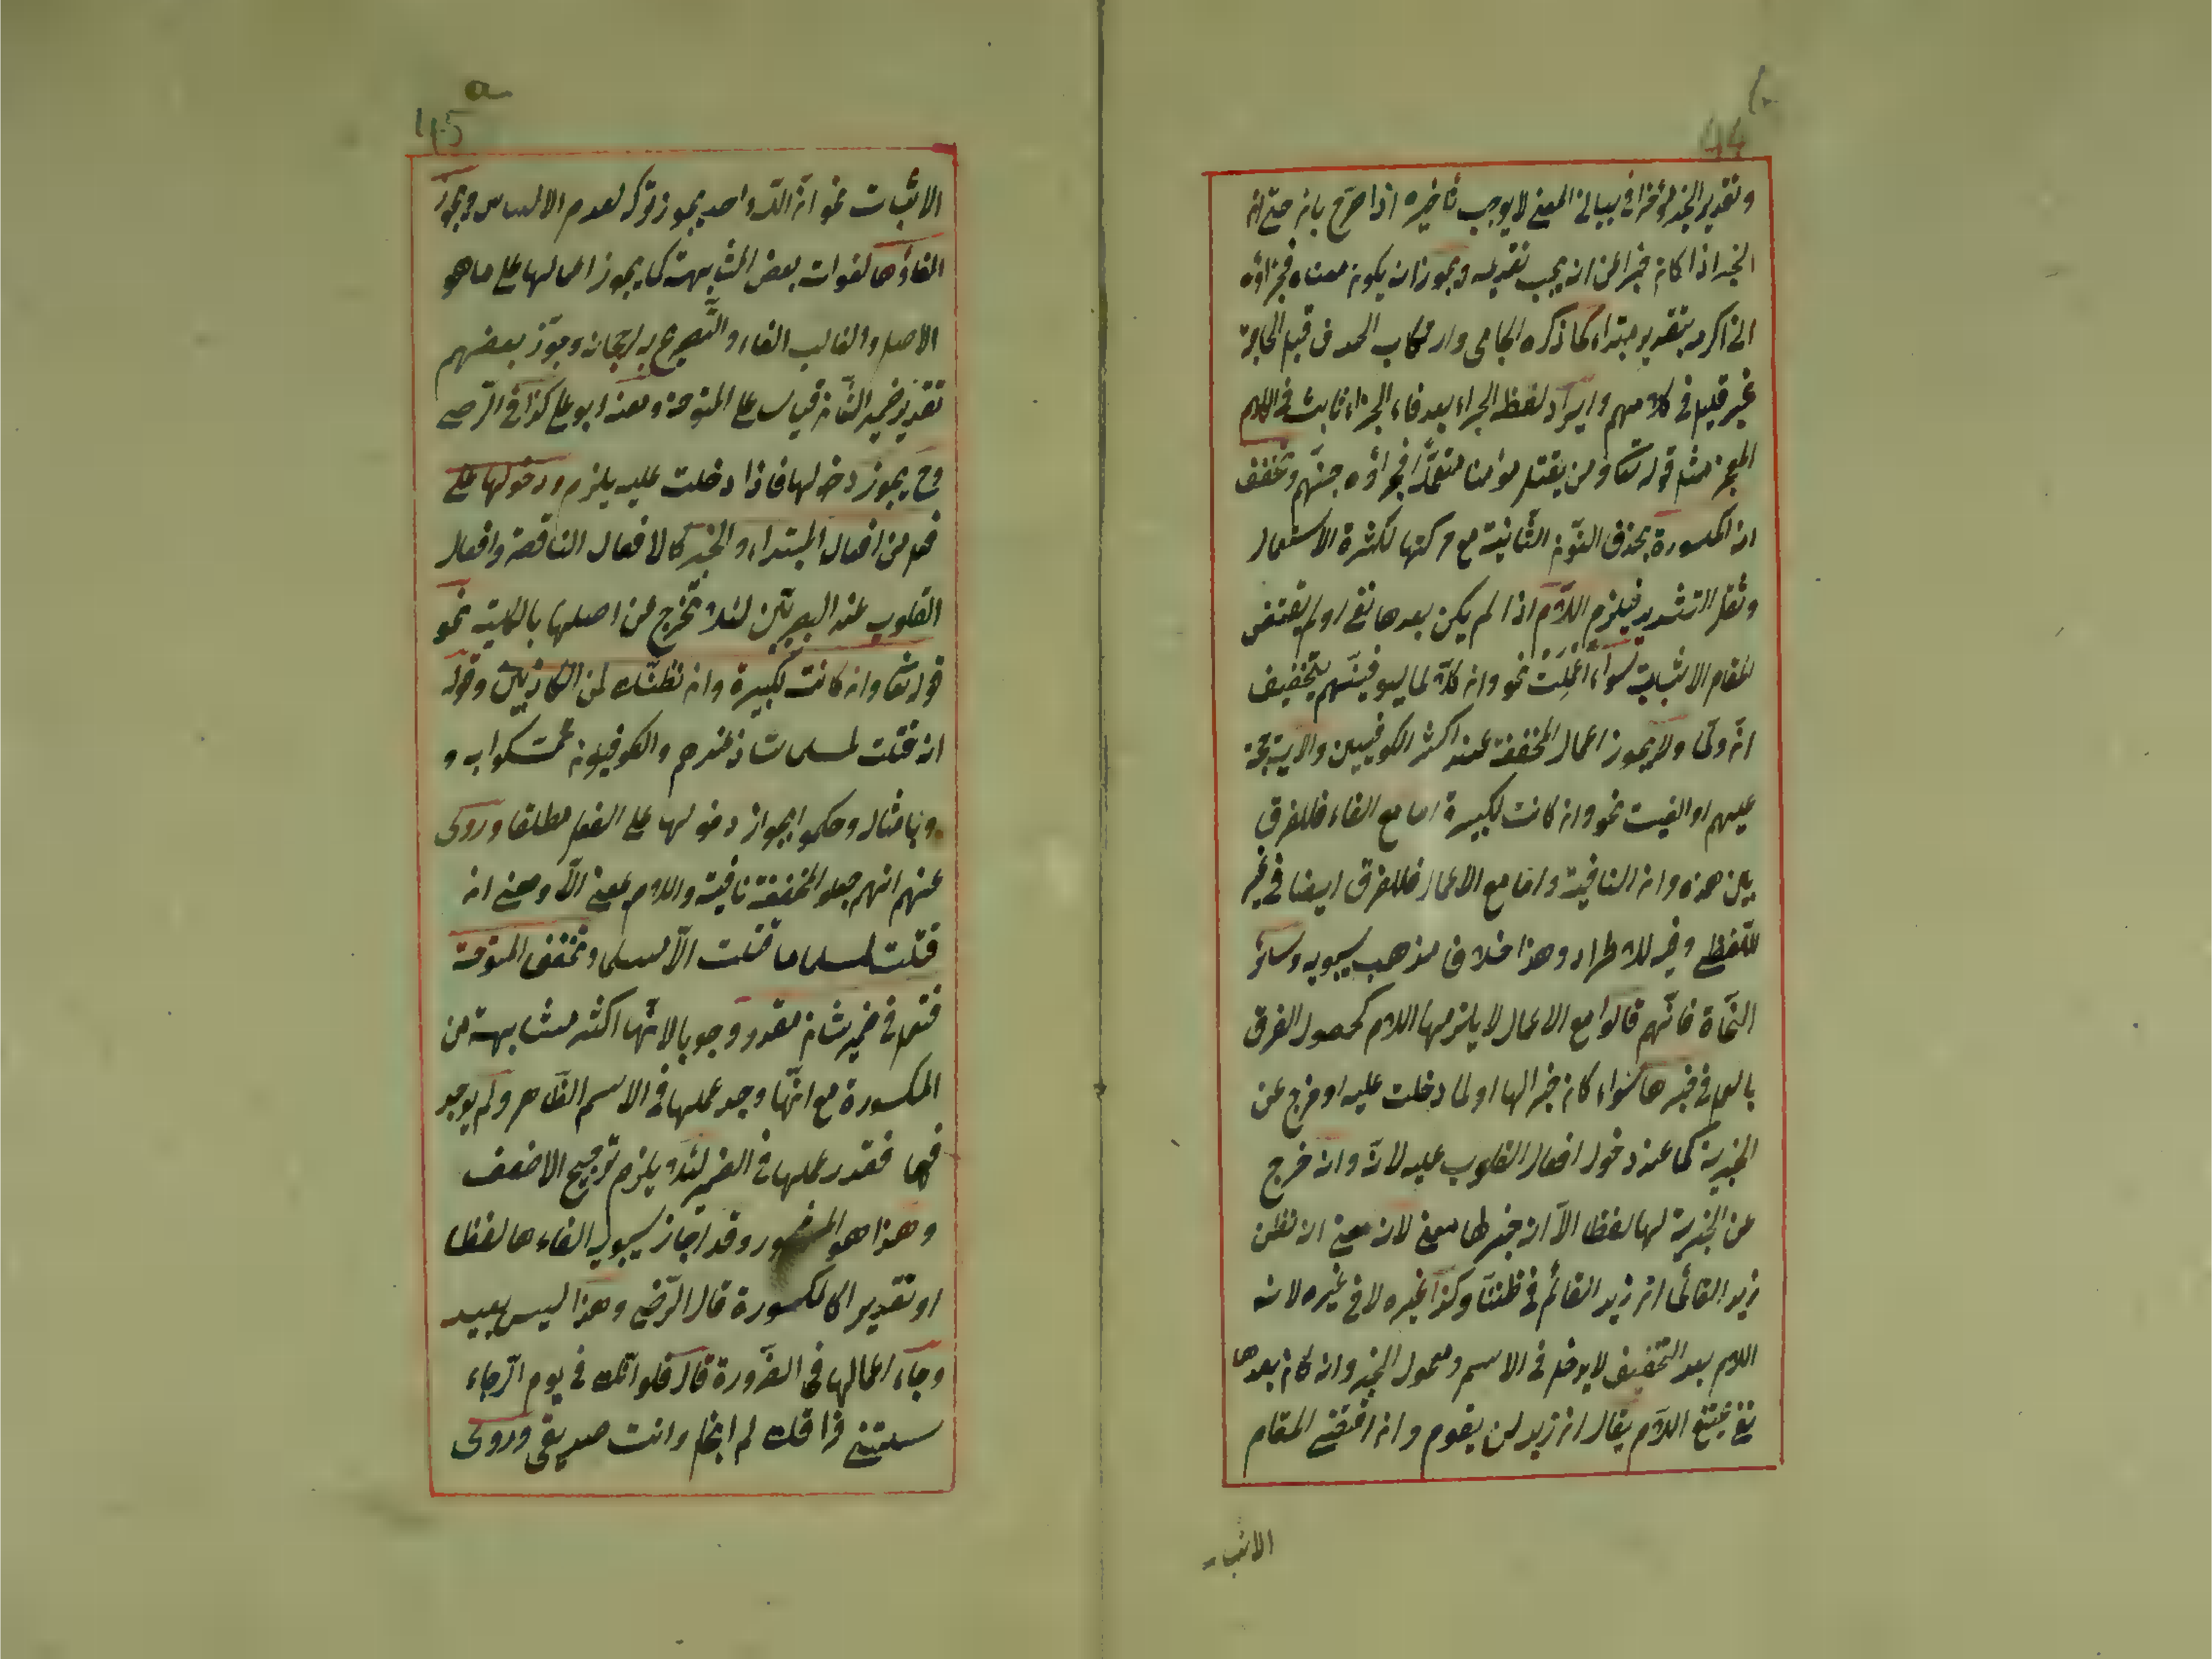 44
وتقدير الخبر مؤخرا في بيان المعنى لا يوجب تأخيره اذا صرّح بانه حتى انه
الخبر اذا كان خبرا عن ان يجب تقديمه ويجوز ان يكون معناه فجزاؤه
ان اكرمه بتقدير مبتداء كما ذكره الجامي وارتكاب الحذف قبل الحاجة
غير قليل في كلامهم وايراد لفظ الجزاء بعد فاء الجزاء ثابت في الكلام
المعجز مثل قوله تعا ومن يقتل مؤمنا متعمّدا فجزاؤه جهنّم وتخفف
ان المكسورة بحذف النّون الثّانية مع حركتها لكثرة الاستعمال
وثقل التشديد فيلزم اللّام اذا لم يكن بعدها نفى او لم يقتض
المقام الاثبات سواء اعملت نحو وان كلّا لما ليوفينّهم بتخفيف
انّ ولمّا ولا يجوز اعمال المخففة عند اكثر الكوفيين والاية حجّة
عليهم او الغيت نحو وان كانت لكبيرة اما مع الغاء فللفرق
بين هذه وان النافية وامّا مع الاعمال فللفرق ايضا في غير
اللّفظى وفيه للاطراد وهذا خلاف مذهب سيبويه وسائر
النّحاة فانّهم قالوا مع الاعمال لا يلزمها اللام لحصول الفرق
بالعمل في خبرها سواء كان خبرا لها او لما دخلت عليه او خرج عن
الخبرية كما عند دخول افعال القلوب عليه لانّه وان خرج
عن الخبرية لها لفظا الّا انه خبر لها معنى لان معنى ان نظن
زيد القائما ان زيد القائم في ظنّنا وكذا غيره لا في غيره لانه
اللام بعد التّخفيف لا يدخل في الاسم ومعمول الخبر وان كان بعدها
نفى يمتنع اللّام يقال ان زيد لن يقوم وان اقتضى المقام
الاثبا
a
45
الاثبات نحو انّ اللّه واحد يجوز تركه لعدم الالتباس ويجوز
الغاؤها لفوات بعض المشابهة كما يجوز اعمالها على ما هو
الاصل والغالب الغاء والتّصريح به لرجحانه وجوّز بعضهم
تقدير ضمير الشّان قياسا على المفتوحة ومنعه ابو على كذا في الرّضى
وح يجوز دخولها فاذا دخلت عليه يلزم ودخولها على
فعل من افعال المبتداء والخبر كالافعال الناقصة وافعال
القلوب عند البصريّين لئلّا تخرج عن اصلها بالكلية نحو
قوله تعا وان كانت لكبيرة وان نظنّك لمن الكاذبين وقوله
ان قتلت لمسلما شاذ عندهم والكوفيون تمسّكوا به و
وبامثاله وحكموا بجواز دخولها على الفعل مطلقا وروى
عنهم انهم جعلوا المخففة نافية واللام بمعنى الّا ومعنى ان
قتلت لمسلما ما قتلت الّا مسلما وتخفف المفتوحة
فتعمل في ضمير شان مقدر وجوبا لانّها اكثر مشابهة من
المكسورة مع انّها وجد عملها في الاسم الظّاهر ولم يوجد
فيها فقدر عملها في الضمير لئلّا يلزم ترجيح الاضعف
وهذا هو المشهور وقد اجاز سيبويه الغاءها لفظا
او تقديرا كالمكسورة قال الرّضى وهذا ليس ببعيد
وجاء اعمالها في الضّرورة قال فلو انّك في يوم الرّخاء
سئلتني فراقك لم ابخل وانت صديقى وروى